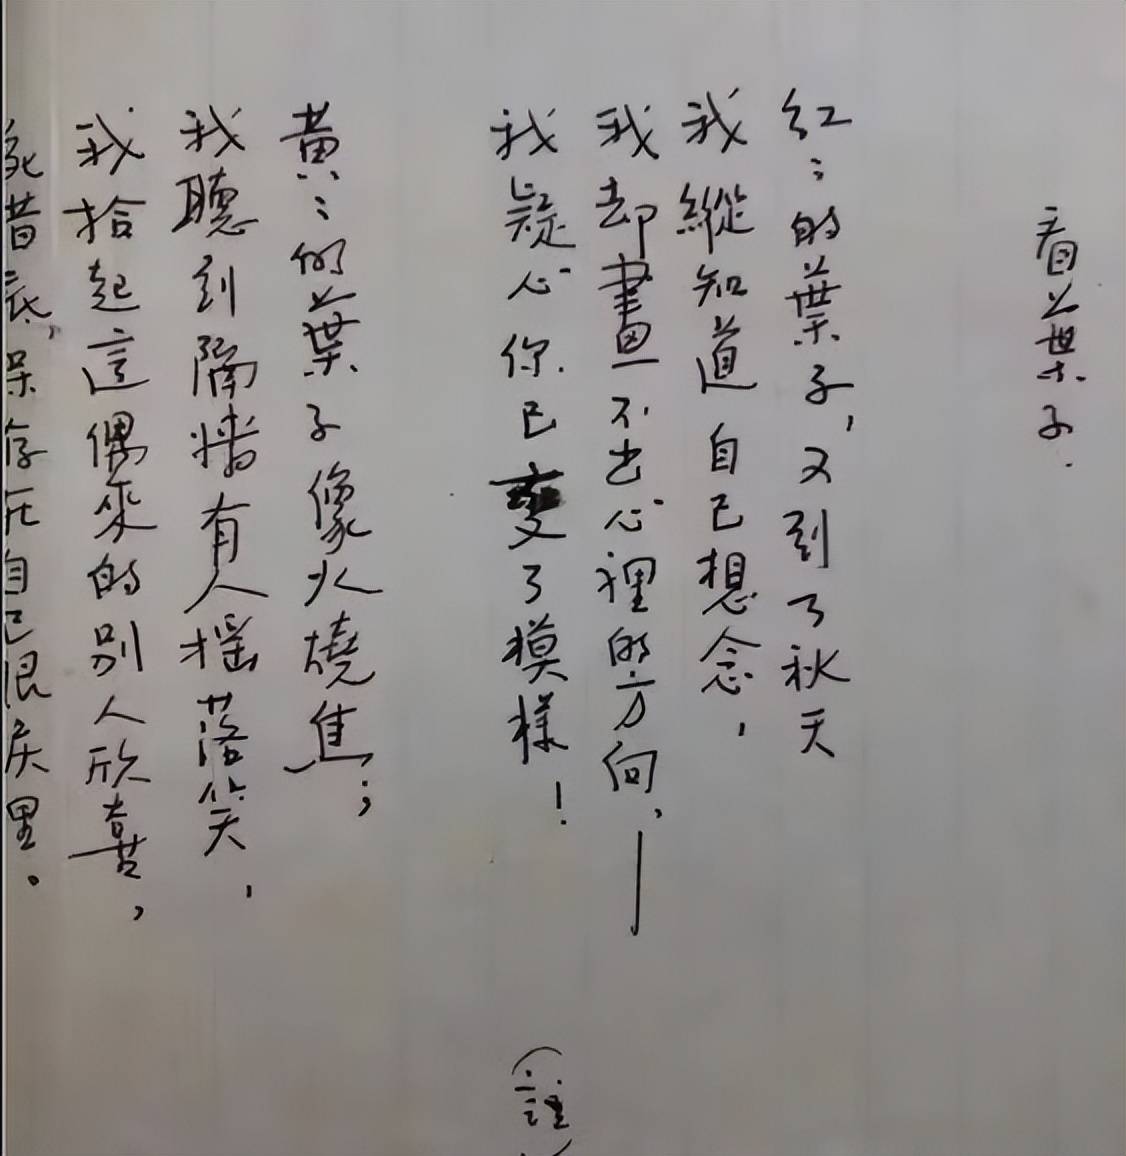 看葉子.
紅：的葉子，又到了秋天
我縱知道自己想念，
我却畫不出心裡的方向，——
我疑心你已變了模樣！
（註）
黃：的葉子像火燒焦；
我聽到隔墻有人搖落笑，
我拾起這偶來的別人欣喜，
存在自己眼